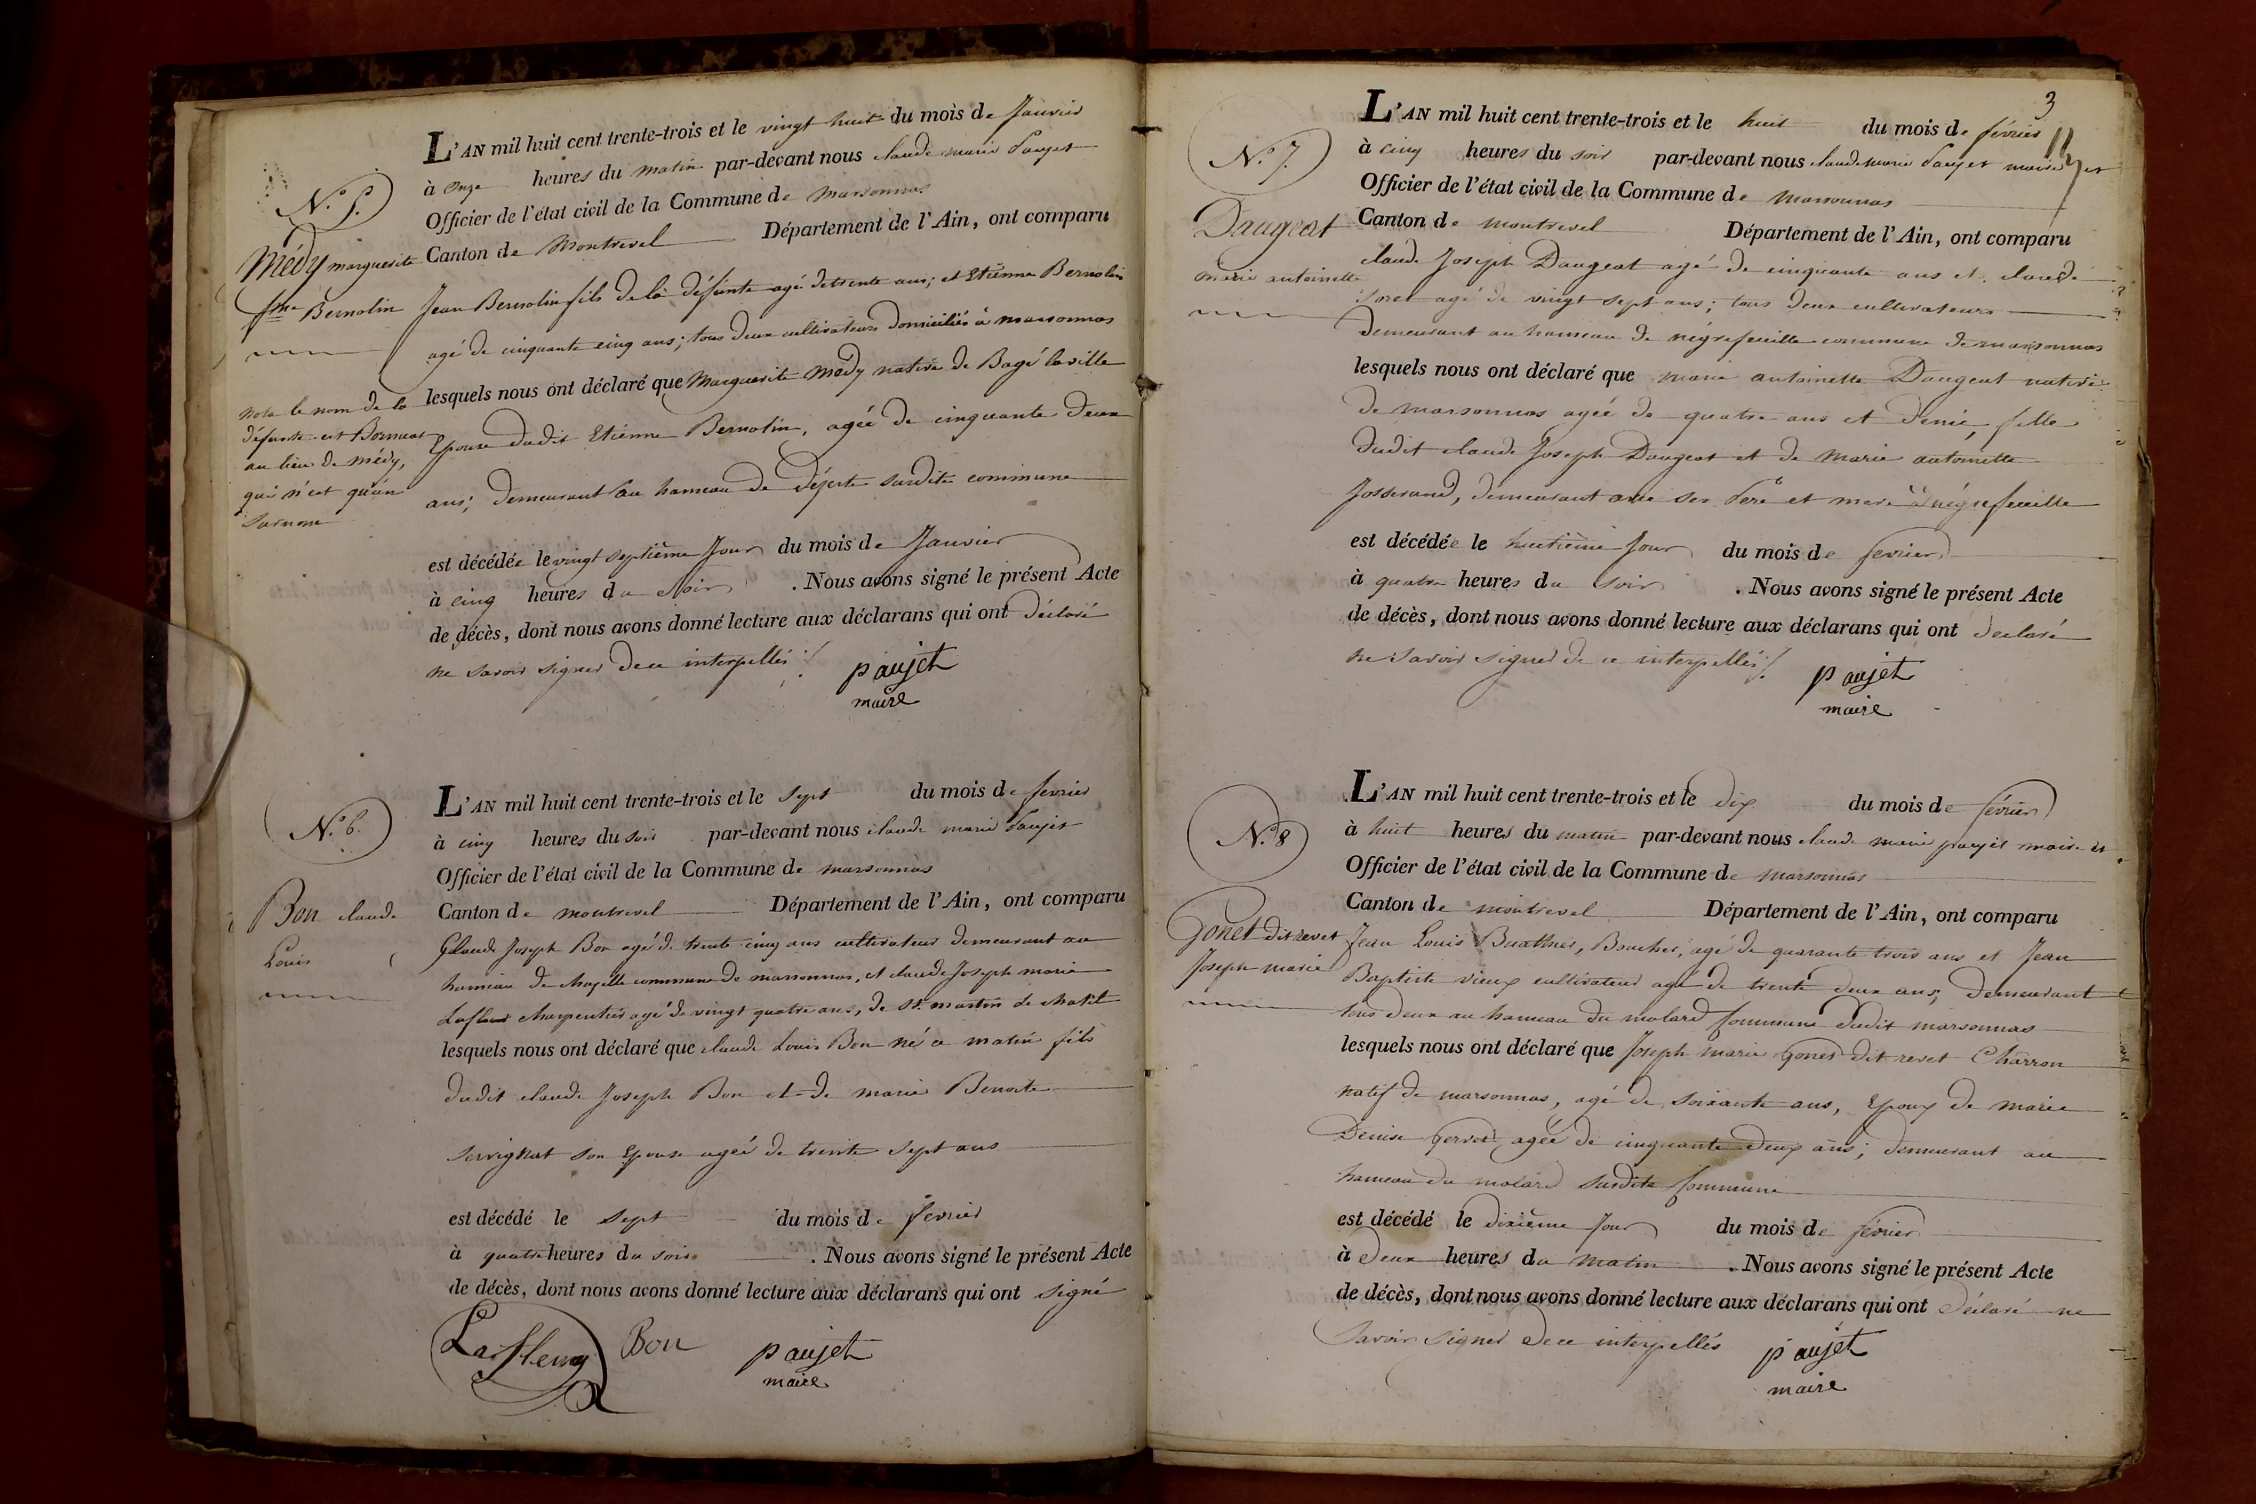 N.° 5.
Médy marguerite
fme Bernolin
nota le nom de la
défunte est Bornuat
au lieu de médy,
qui n'est qu'un
surnom
L'AN mil huit cent trente-trois et le vingt huit du mois de Janvier
à onze heures du matin par-devant nous claude marie Paujet
Officier de l'état civil de la Commune de marsonnas
Canton de Montrevel Département de l'Ain, ont comparu
Jean Bernolin fils de la défunte agé de trente ans; et Etienne Bernolin
agé de cinquante cinq ans; tous deux cultivateurs domiciliés à marsonnas
lesquels nous ont déclaré que Marguerite Médy native de Bagé la ville
Epouse dudit Etienne Bernolin, agée de cinquante deux
ans; demeurant au hameau de déserte susdite commune
est décédée le vingt septième Jour du mois de Janvier
à cinq heures du soir. Nous avons signé le présent Acte
de décès, dont nous avons donné lecture aux déclarans qui ont déclaré
ne savoir signer de ce interpellés ./.
paujet
maire
N.° 6.
Bon claude
Louis
L'AN mil huit cent trente-trois et le sept du mois de février
à cinq heures du soir par-devant nous claude marie Paujet
Officier de l'état civil de la Commune de marsonnas
Canton de montrevel Département de l'Ain, ont comparu
Claude Joseph Bon agé de trente cinq ans cultivateur demeurant au
hameau de chapelle commune de marsonnas, et claude Joseph marie
Lafleur charpentier agé de vingt quatre ans, de St. martin le chatel
lesquels nous ont déclaré que claude Louis Bon né ce matin fils
dudit claude Joseph Bon et de marie Benoite
servignat son Epouse agée de trente sept ans
est décédé le sept du mois de février
à quatre heures du soir. Nous avons signé le présent Acte
de décès, dont nous avons donné lecture aux déclarans qui ont signé
Lafleur Bon paujet
maire
3
N.° 7.
Daugeat
marie antoinette
L'AN mil huit cent trente-trois et le huit du mois de février
à cinq heures du soir par-devant nous claude marie Paujet maire et
Officier de l'état civil de la Commune de marsonnas
Canton de montrevel Département de l'Ain, ont comparu
claude Joseph Daugeat agé de cinquante ans et claude
agé de vingt sept ans; tous deux cultivateurs
demeurant au hameau de négrefeuille commune de marsonnas
lesquels nous ont déclaré que marie antoinette Daugeat native
de marsonnas agée de quatre ans et demie, fille
dudit claude Joseph Daugeat et de marie antoinette
Josserand, demeurant avec ses Père et mère à négrefeuille
est décédée le huitième Jour du mois de février
à quatre heures du soir. Nous avons signé le présent Acte
de décès, dont nous avons donné lecture aux déclarans qui ont déclaré
ne savoir signer de ce interpellés ./.
paujet
maire
N.° 8
Gonet dit revet
Joseph marie
L'AN mil huit cent trente-trois et le dix du mois de février
à huit heures du matin par-devant nous claude marie paujet maire et
Officier de l'état civil de la Commune de marsonnas
Canton de montrevel Département de l'Ain, ont comparu
Jean Louis Buathier, Boucher, agé de quarante trois ans et Jean
Baptiste vieux cultivateur agé de trente deux ans; demeurant
tous deux au hameau du molard Commune dudit marsonnas
lesquels nous ont déclaré que Joseph marie Gonet dit revet Charron
natif de marsonnas, agé de soixante ans, Epoux de marie
Denise agée de cinquante deux ans; demeurant au
hameau du molard susdite Commune
est décédé le dixième Jour du mois de février
à Deux heures du matin. Nous avons signé le présent Acte
de décès, dont nous avons donné lecture aux déclarans qui ont déclaré ne
savoir signer de ce interpellés
paujet
maire